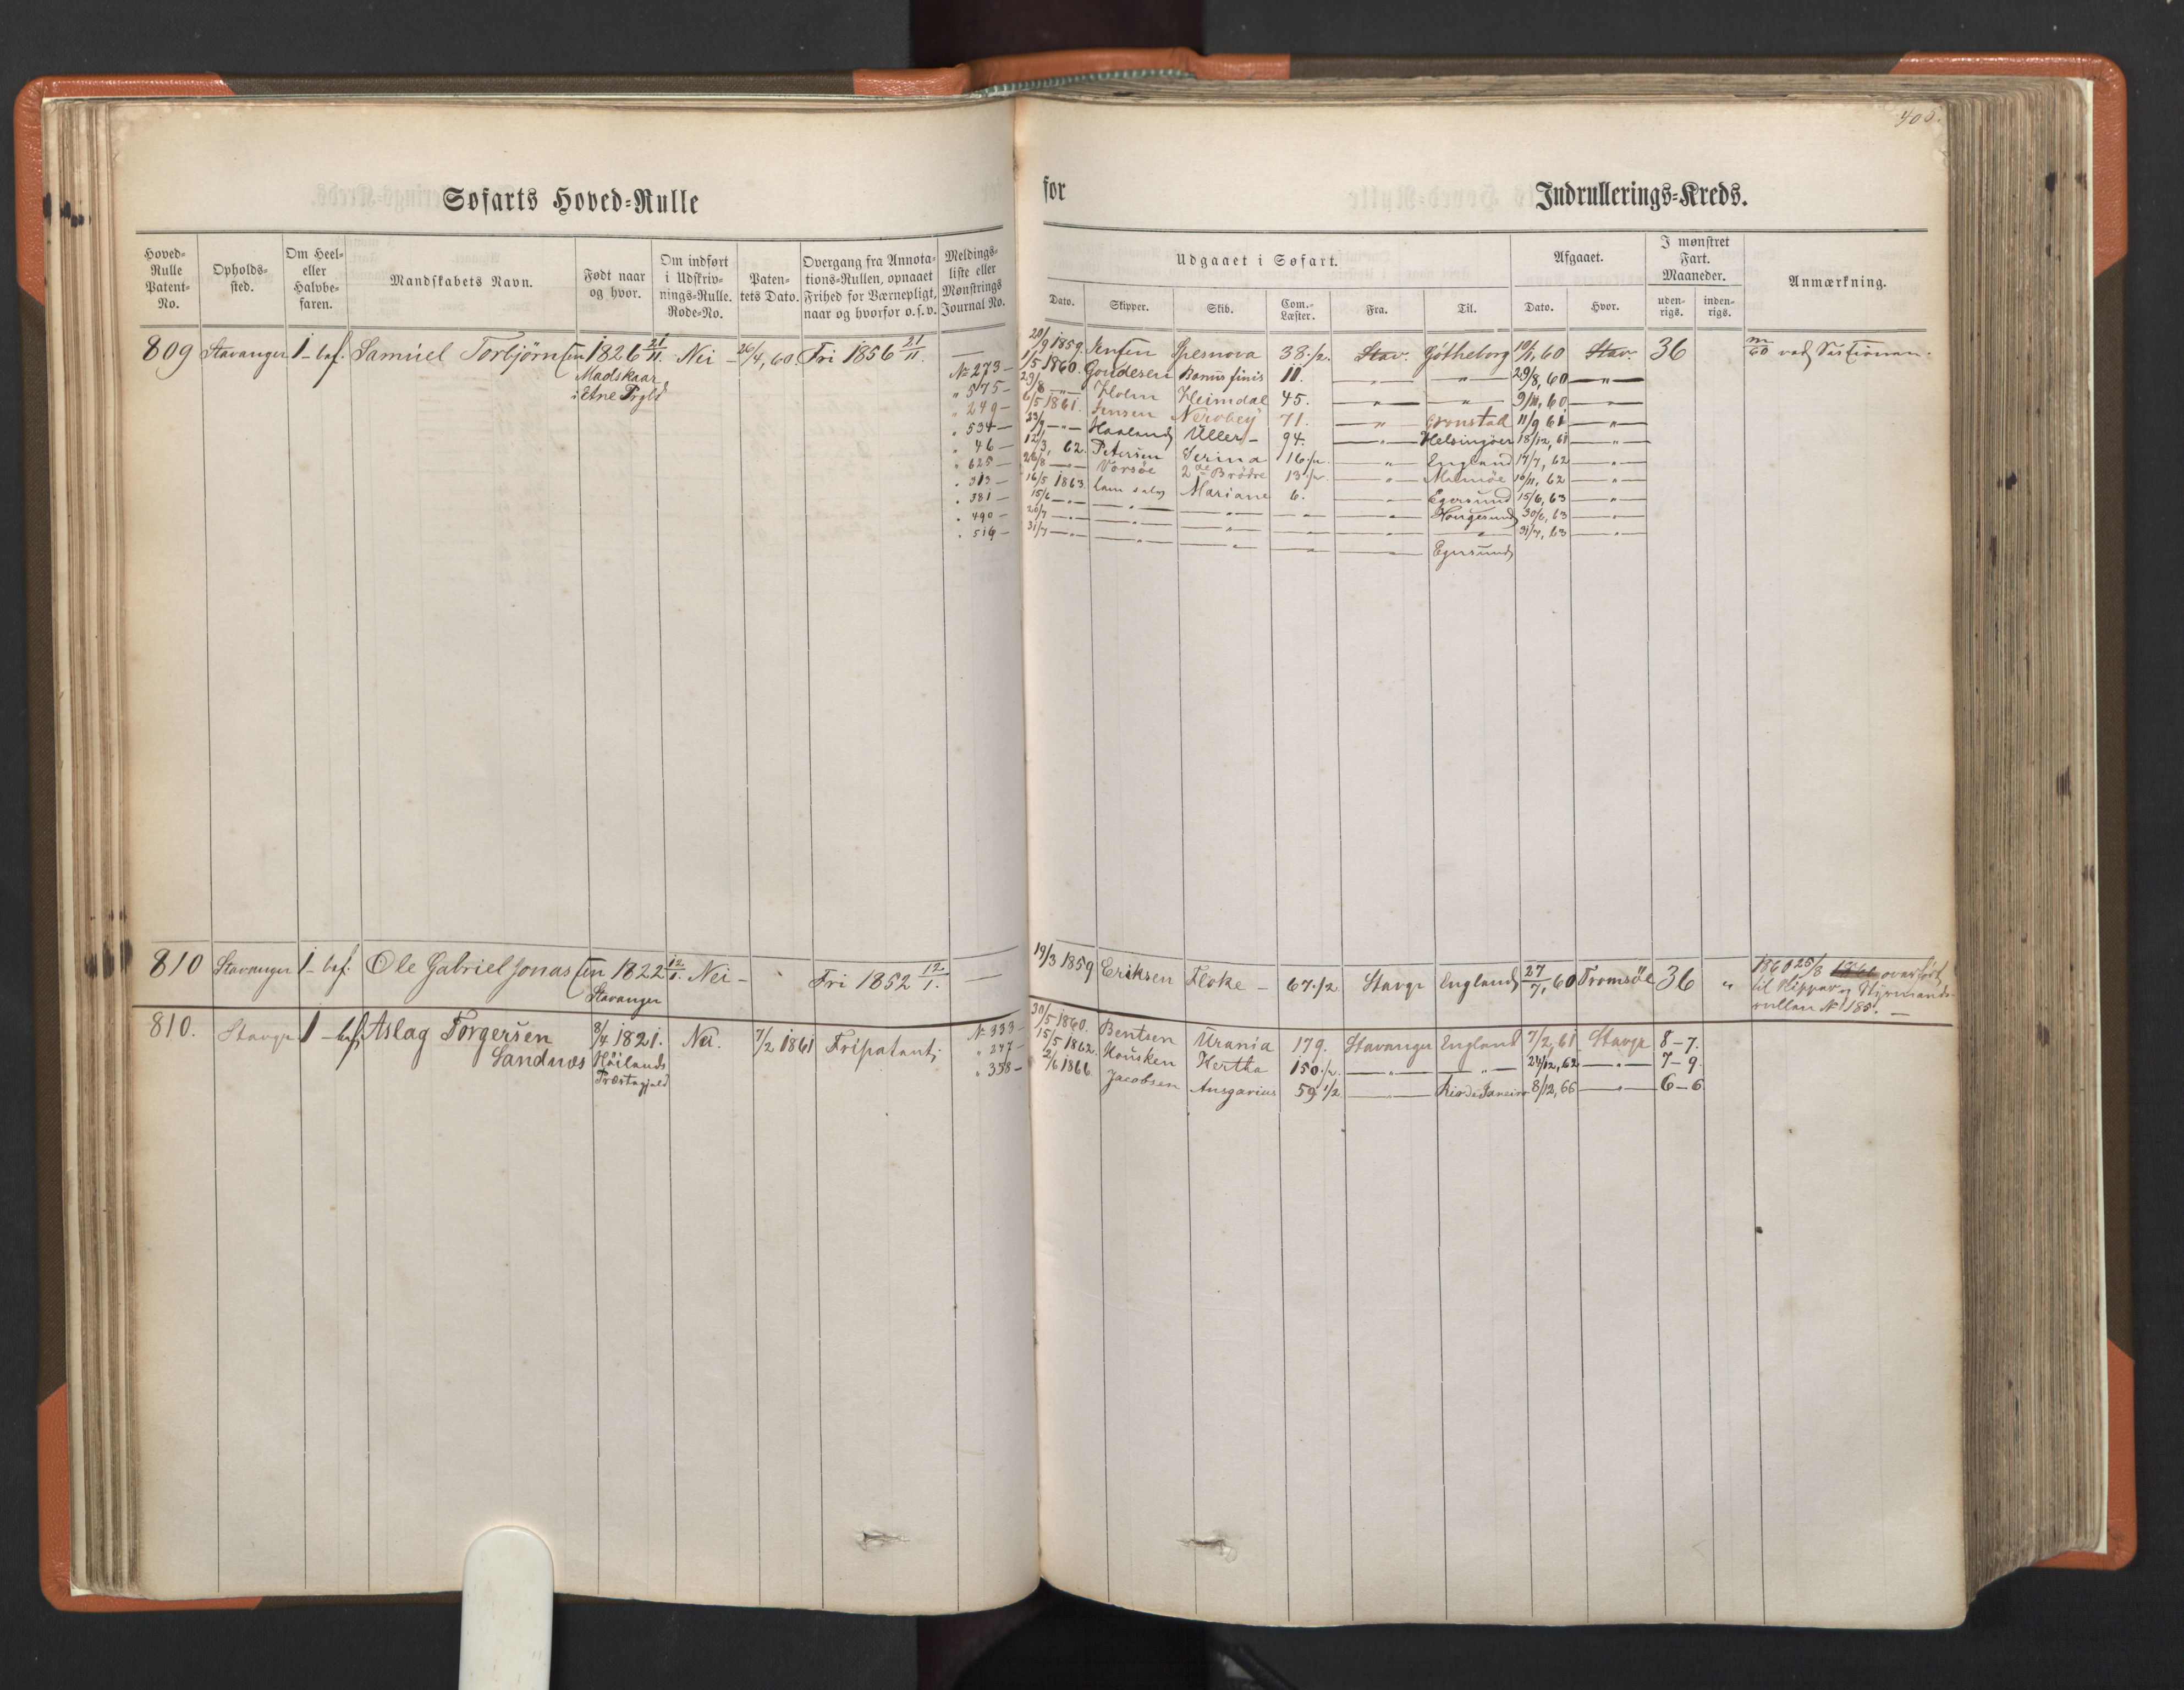 405.
Søfarts Hoved-Rulle
for Indrullerings-Kreds.
Hoved-Rulle Patent-No. Opholds-sted. Om Heel- eller Halvbe-faren. Mandskabets Navn. Født naar og hvor. Om indført i Udskriv-nings-Rulle. Rode-No. Paten-tets Dato. Overgang fra Annota-tions-Rullen, opnaaet Frihed for Værnepligt, naar og hvorfor o. s. v. Meldings-liste eller Mønstrings Journal No.
Udgaaet i Søfart. Afgaaet. I mønstret Fart. Maaneder. Anmærkning.
Dato. Skipper. Skib. Com.-Læster. Fra. Til. Dato. Hvor. uden-rigs. inden-rigs.
809 Stavanger 1 - bef. Samuel Torbjørnsen 1826 21/11 Nei - 26/4, 60. Fri 1856 21/11. — 20/9 1859. Jensen Spesnova 38 1/2. Stav. Gøtheborg 10/1, 60 Stav. 36
Madskaar
i Etne Prgld
No 273 — 1/5 1860. Goudesen Bonus finis 11. — " — — " — 29/8, 60 — " —
" 575 — 29/8 — " — Holm Heimdal 45. — " — — " — 9/11, 60 — " —
" 249 — 6/5 1861. Jensen 71. — " — Cronstad 11/9 61 — " —
" 534 — 23/9 — " — Haaland Uller — 94. — " — Helsingøer 18/12, 61 — " —
" 46 — 12/3, 62. Petersen Serina 16 1/2. — " — England 17/7, 62 — " —
" 625 — 26/8 — " — Vorsøe 2de Brødre 13 1/2. — " — Malmøe 10/11, 62 — " —
" 313 — 16/5 1863. ham selv Mariane 6. — " — Egersund 15/6, 63 — " —
" 381 — 15/6 — " — — " — — " — — " — — " — Hougesund 30/6, 63 — " —
" 490 — 20/7 — " — — " — — " — — " — — " — — " — 31/7, 63 — " —
" 516 — 31/7 — " — — " — — " — — " — — " — Egersund
810 Stavanger 1 - bef. Ole Gabriel Jonassen 1822 12/1. Nei - Fri 1852 12/1. — 19/3 1859 Eriksen Floke — 67 1/2 Stavgr England 27/7, 60 Tromsøe 36 " 1860 25/8 overført
Stavanger
til Skipper og Styrmands-
rullen No 185. —
810. Stavgr 1 - bef. Aslag Torgersen 8/4 1821. Nei. 7/2 1861 Fripatent. No 333 — 30/5 1860. Bentsen Urania 179. Stavanger England 7/2, 61 Stavgr 8 - 7.
Sandnæs Høilands " 247 — 15/5 1862. Housken Hertha 150 1/2. — " — — " — 24/12, 62 — " — 7 - 9.
Præstegjeld " 358 — 2/6 1866. Jacobsen Ansgarius 59 1/2 — " — Rio de Janeiro 8/12, 66 — " — 6 - 6